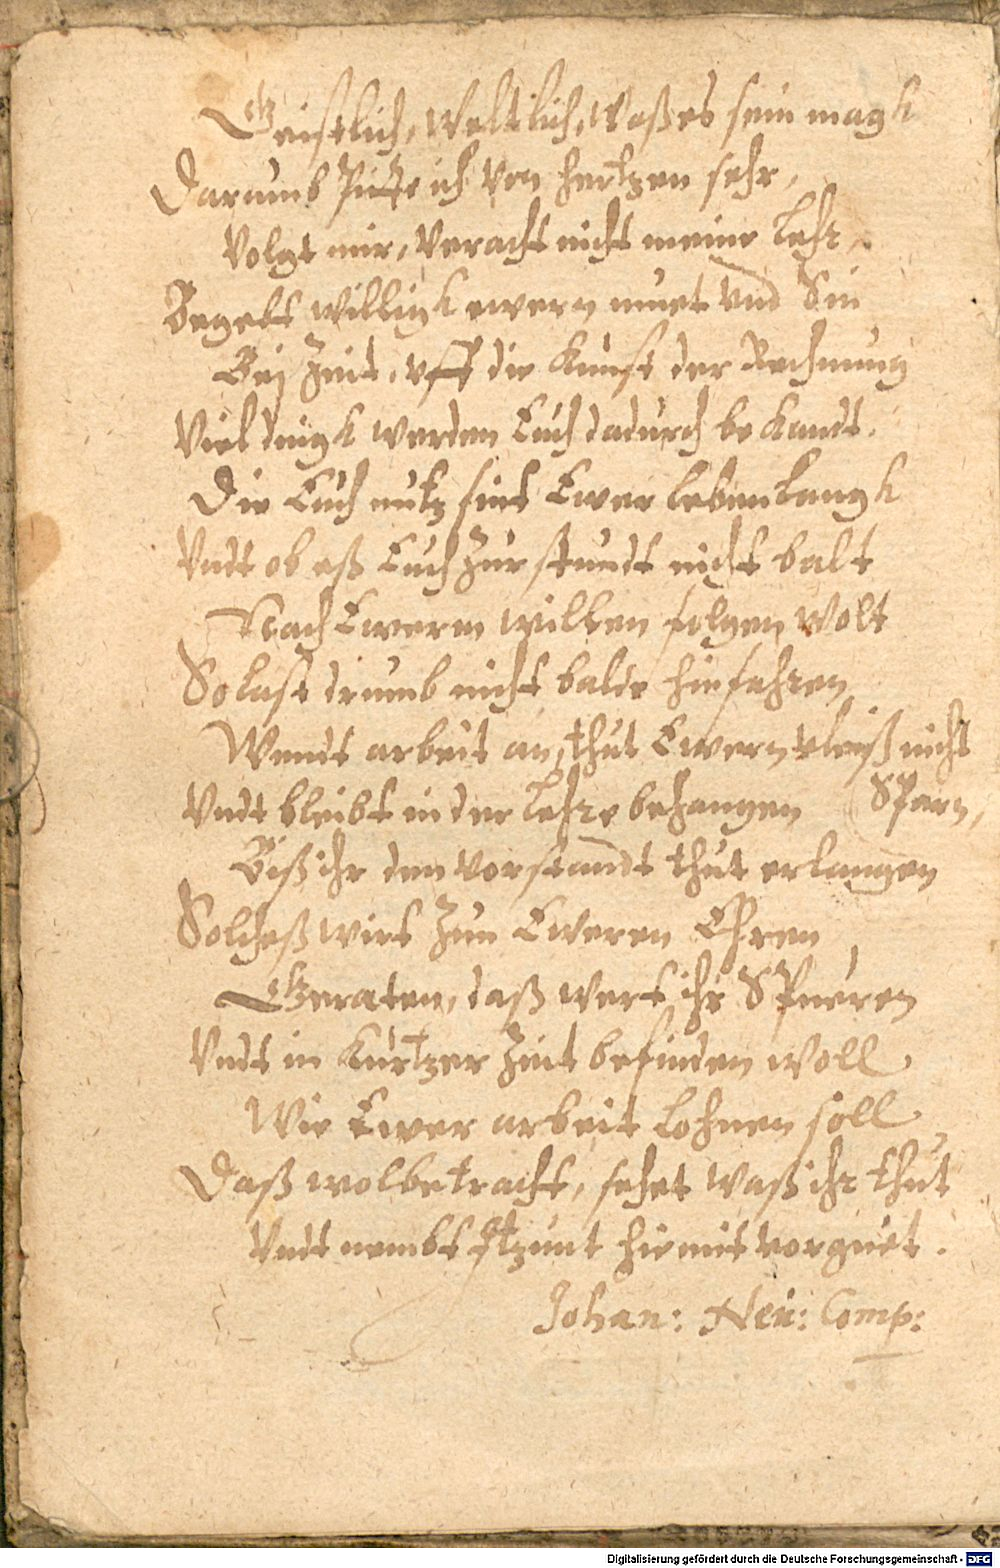 Geistlich, Weltlich, Waß es sein magk
Darumb bitte ich von hertzen sehr,
Volgt mir, Veracht nicht meine Lehr,
Begebt willigk ewern muet vnd Sin
Bej Zeit, vff die Kunst der Rechnung
Viel dingk werden Euch dadurch bekandt.
Die Euch nutz sint Ewer lebenlangk
Vndt ob eß Euch Zur stundt nicht balt
Nach Ewerm willen folgen wolt
So last drumb nicht balde hinfahren
Wendt arbeit an, thut Ewern vleiß nicht
Vndt bleibt in der Lehre behangen (Sparn,
Biß ihr den vorstandt thut erlangen
Solcheß wirt Zun Eweren Ehren
Geraten, daß wert ihr Spueren
Vndt in Kurtzer Zeit befinden woll
Wie Ewer arbeit Lohnen soll
Daß wol betracht, sehet waß ihr thut
Vndt nembt itzunt hiemit vorguet.
Johan: Neu: Comp:
Digitalisierung gefördert durch die Deutsche Forschungsgemeinschaft - DFG